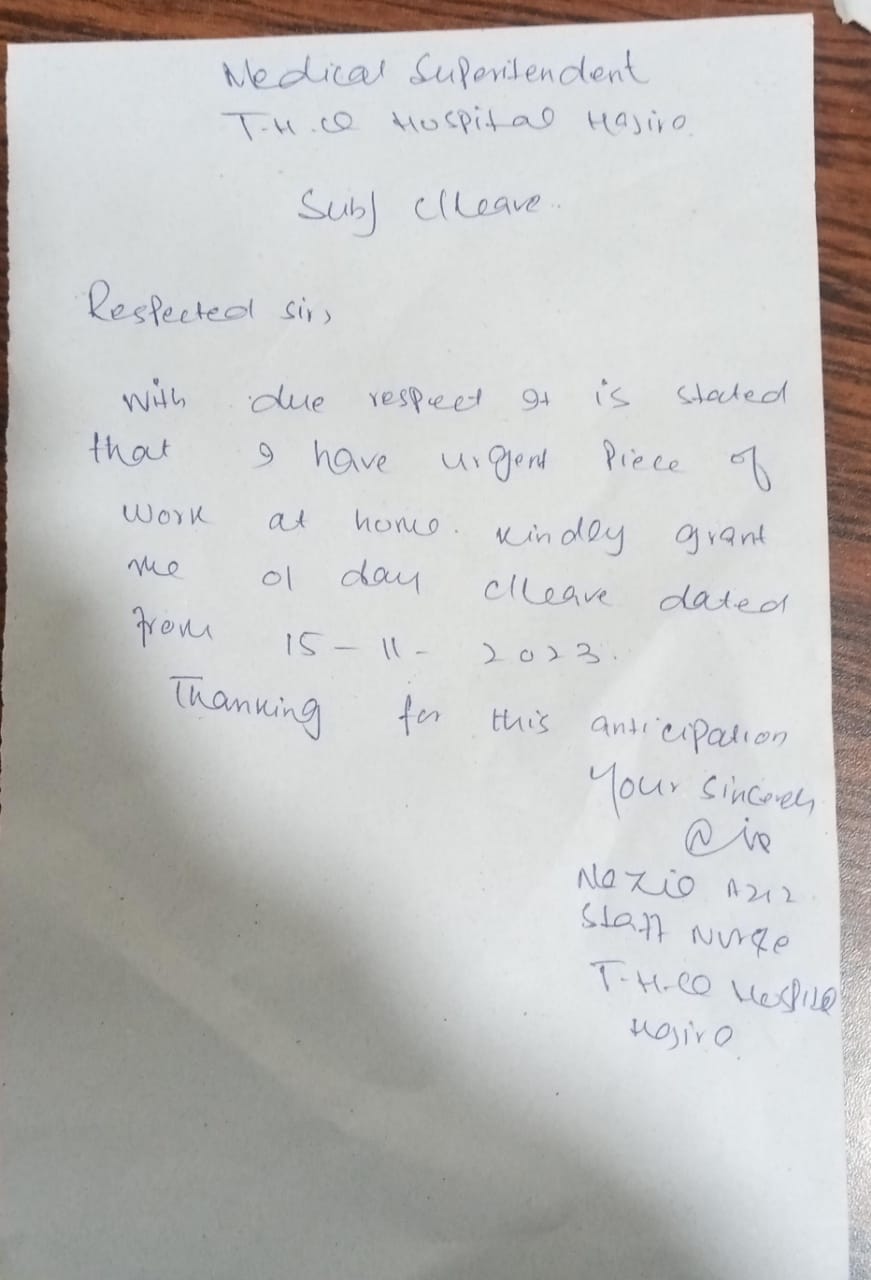 Medical Superitendent
T.H.Q Hospital Hajiro
Subj c/leave..
Respected sir,
with due respect It is stated
that I have urgent Piece of
work at home. Kindly grant
me 01 day c/leave dated
from 15-11-2023.
Thanking for this anticipation
Your Sincerely
Nazia Aziz
Staff Nurse
T.H.Q Hospital
Hajiro